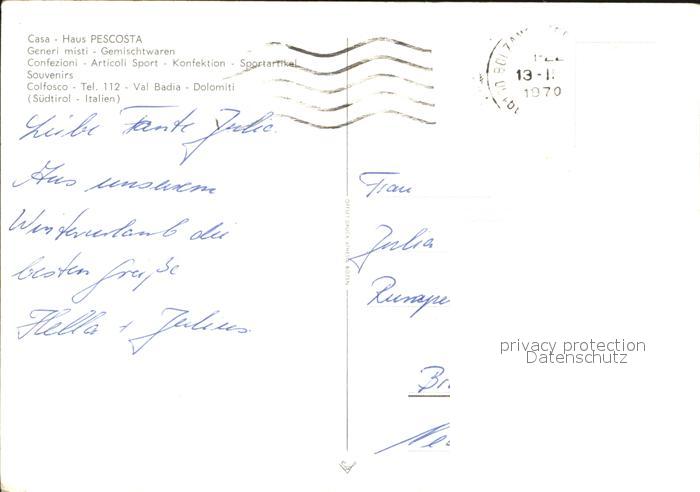 Casa - Haus PESCOSTA
Generi misti - Gemischtwaren
Confezioni - Articoli Sport - Konfektion - Sportartikel
Souvenirs
Colfosco - Tel. 112 - Val Badia - Dolomiti
(Südtirol - Italien)
Liebe Tante Julie.
Aus unserem
Winterurlaub die
besten Grüße
Hella + Julius.
BOLZANO
13-II
1970
Frau
Julia
privacy protection
Datenschutz